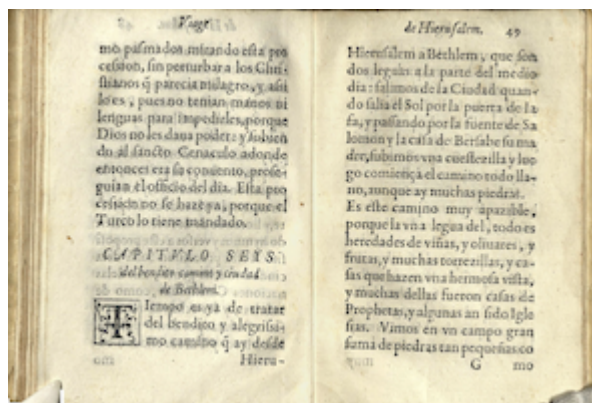 Viage
mo pasmados mirando esta pro
cession, sin perturbar a los Chri-
stianos q̃ parecia milagro, y assi
lo es, pues no tenian manos ni
lenguas para impedirles, porque
Dios no les daua poder: y subien
do al sancto Cenaculo adonde
entonces era su conuento, prose-
guian el officio del dia. Esta pro
cession no se haze ya, porque el
Turco lo tiene mandado.
CAPITVLO SEYS
del bendito camino y ciudad
de Bethlem.
TIempo es ya de tratar
del bendito y alegrissi-
mo camino q̃ ay desde
Hieru-
de Hierusalem. 49
Hierusalem a Bethlem, que son
dos leguas a la parte del medio
dia: salimos de la Ciudad quan-
do salia el Sol por la puerta de Ia
fa, y passando por la fuente de Sa
lomon y la casa de Bersabe su ma
dre, subimos vna cuestezilla y lue
go comiença el camino todo lla-
no, aunque ay muchas piedras.
Es este camino muy apazible,
porque la vna legua del, todo es
heredades de viñas, y oliuares, y
frutas, y muchas torrezillas, y ca-
sas que hazen vna hermosa vista,
y muchas dellas fueron casas de
Prophetas, y algunas an sido Igle
sias. Vimos en vn campo gran
suma de piedras tan pequeñas co
G mo